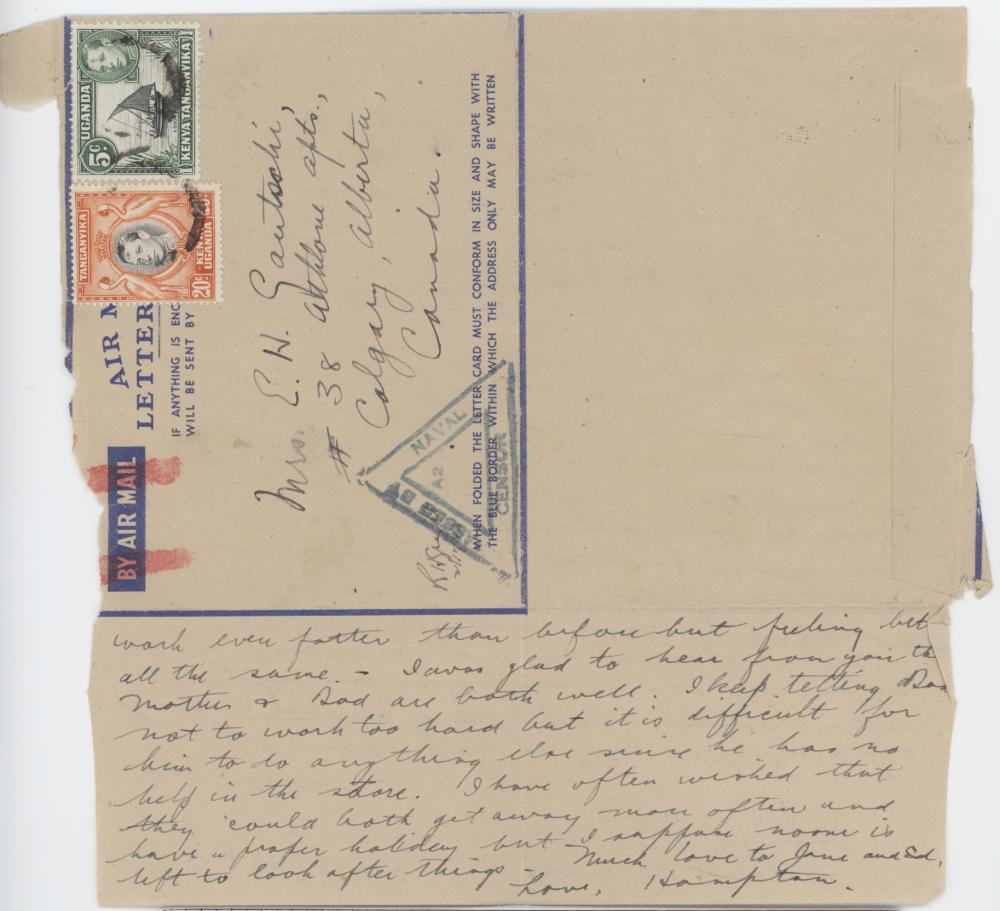 5c
UGANDA
KENYA TANGANYIKA
TANGANYIKA
KENYA
UGANDA
20c
AIR M
LETTER
IF ANYTHING IS ENC
WILL BE SENT BY
BY AIR MAIL
Mrs. E. H. Gautschi,
# 38 Athlone apts.,
Calgary, Alberta,
Canada.
NAVAL
A2
CENSOR
WHEN FOLDED THE LETTER CARD MUST CONFORM IN SIZE AND SHAPE WITH
THE BLUE BORDER WITHIN WHICH THE ADDRESS ONLY MAY BE WRITTEN
work even faster than before but feeling bet
all the same. - I was glad to hear from you th
Mother & Dad are both well. I keep telling Dad
not to work too hard but it is difficult for
him to do anything else since he has no
help in the store. I have often wished that
they could both get away more often and
have a proper holiday but I suppose noone is
left to look after things - Much love to Jane and Ed,
Love, Hampton.